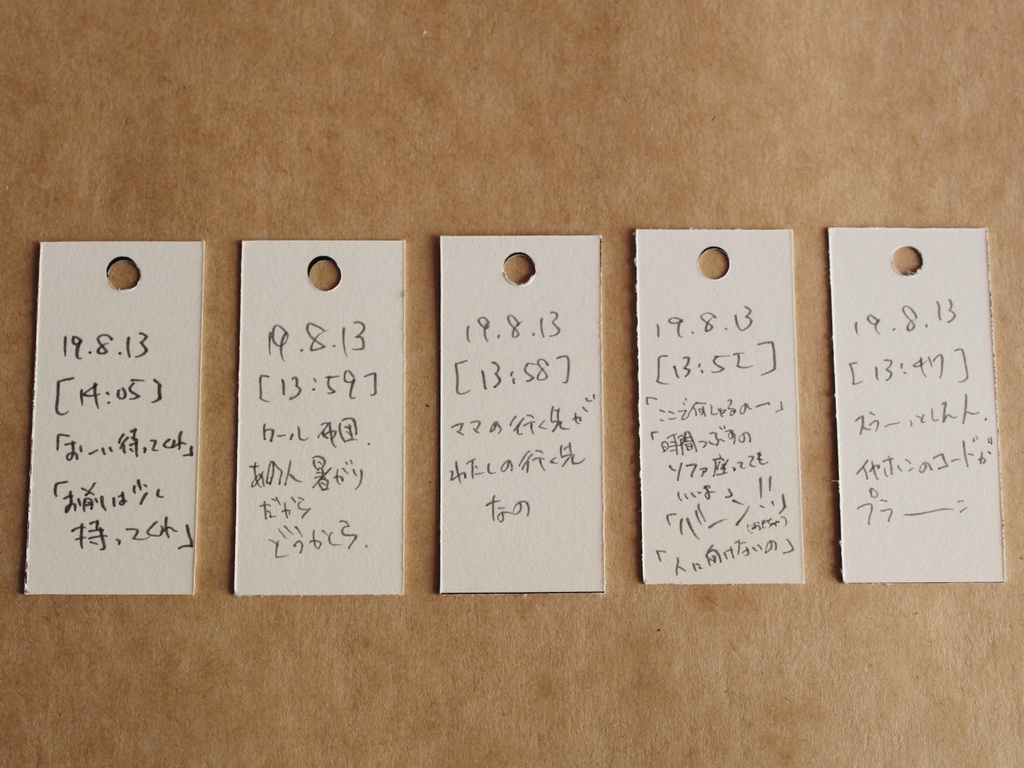 19.8.13
[14:05]
「おーい待ってくれ」
「お前は少し
持ってくれ」
19.8.13
[13:59]
クール布団.
あの人暑がり
だから
どうかしら.
19.8.13
[13:58]
ママの行く先が
わたしの行く先
なの
19.8.13
[13:52]
「ここで何しゃるのー」
「時間つぶすの
ソファ座ってても
いいよ」
「バーン!!」
(おもちゃ)
「人に向けないの」
19.8.13
[13:47]
スラーっとした人.
イヤホンのコードが
プラーーン